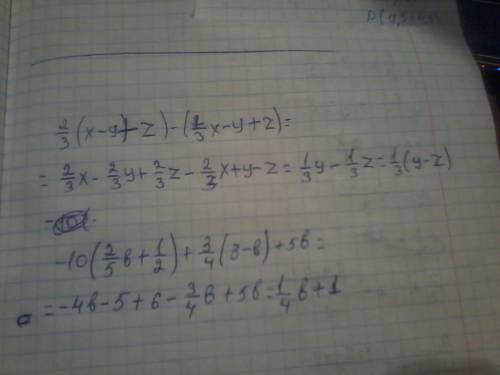 2/3(x-y+z)-(2/3x-y+z)=
=2/3x-2/3y+2/3z-2/3x+y-z=1/3y-1/3z=1/3(y-z)
-10(2/5b+1/2)+3/4(8-b)+5b=
=-4b-5+6-3/4b+5b=1/4b+1